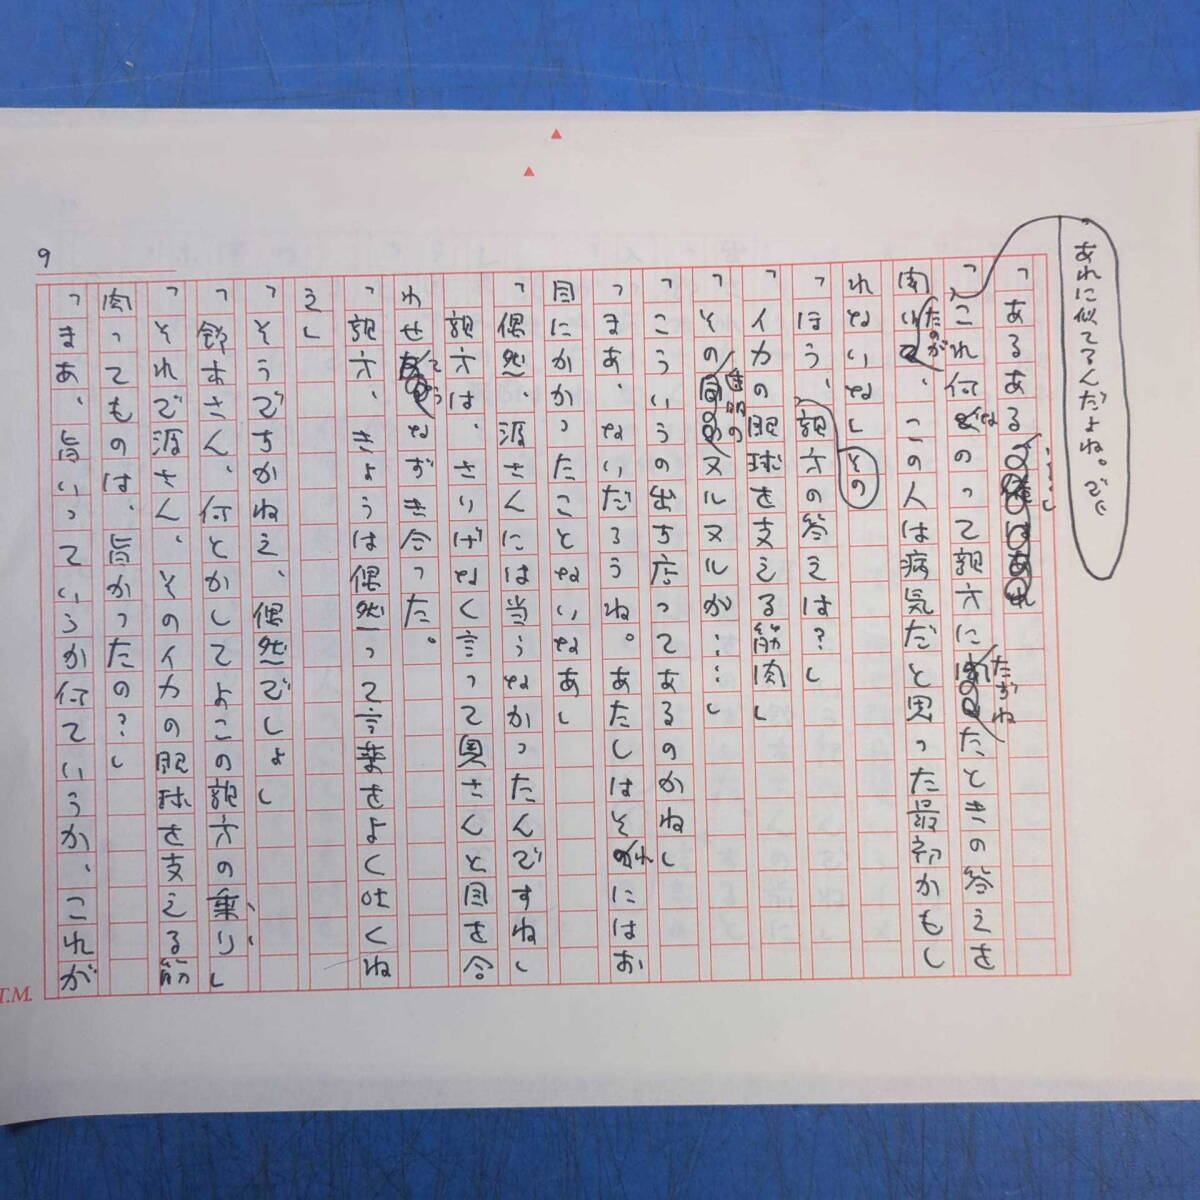 9
「あれに似てるんだよね。で、
「あるある……」
「これ何なのって親方にたずねたときの答えを
聞いたのが、この人は病気だと思った最初かもし
れないな」
「ほう、その親方の答えは?」
「イカの眼球を支える筋肉」
「その透明のヌルヌルが……」
「こういうの出す店ってあるのかね」
「まあ、ないだろうね。あたしはそれにはお
目にかかったことないなあ」
「偶然、源さんには当らなかったんですね」
親方は、さりげなく言って奥さんと目を合
わせてうなずき合った。
「親方、きょうは偶然って言葉をよく吐くね
え」
「そうですかねえ、偶然でしょ」
「鈴木さん、何とかしてよこの親方の乗り」
「それで源さん、そのイカの眼球を支える筋
肉ってものは、旨かったの?」
「まあ、旨いっていうか何ていうか、これが
T.M.